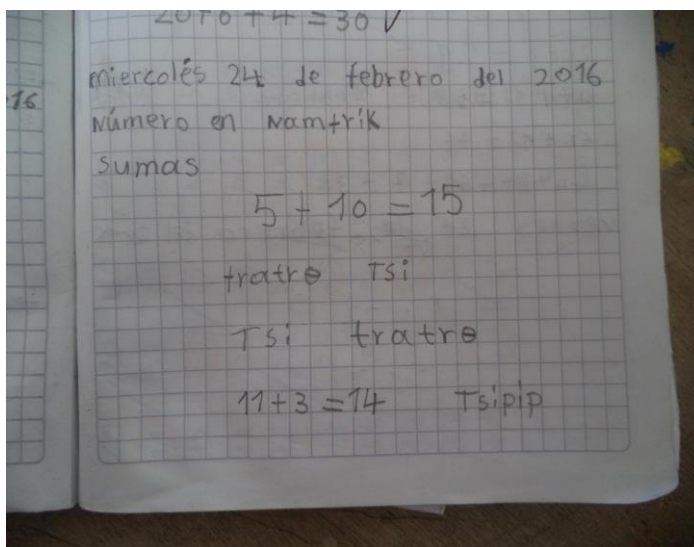 20+6+4=30 √
16
miercolés 24 de febrero del 2016
Número en Namtrik
sumas
5 + 10 = 15
tratrɵ Tsi
Tsi tratrɵ
11+3 =14 Tsipip